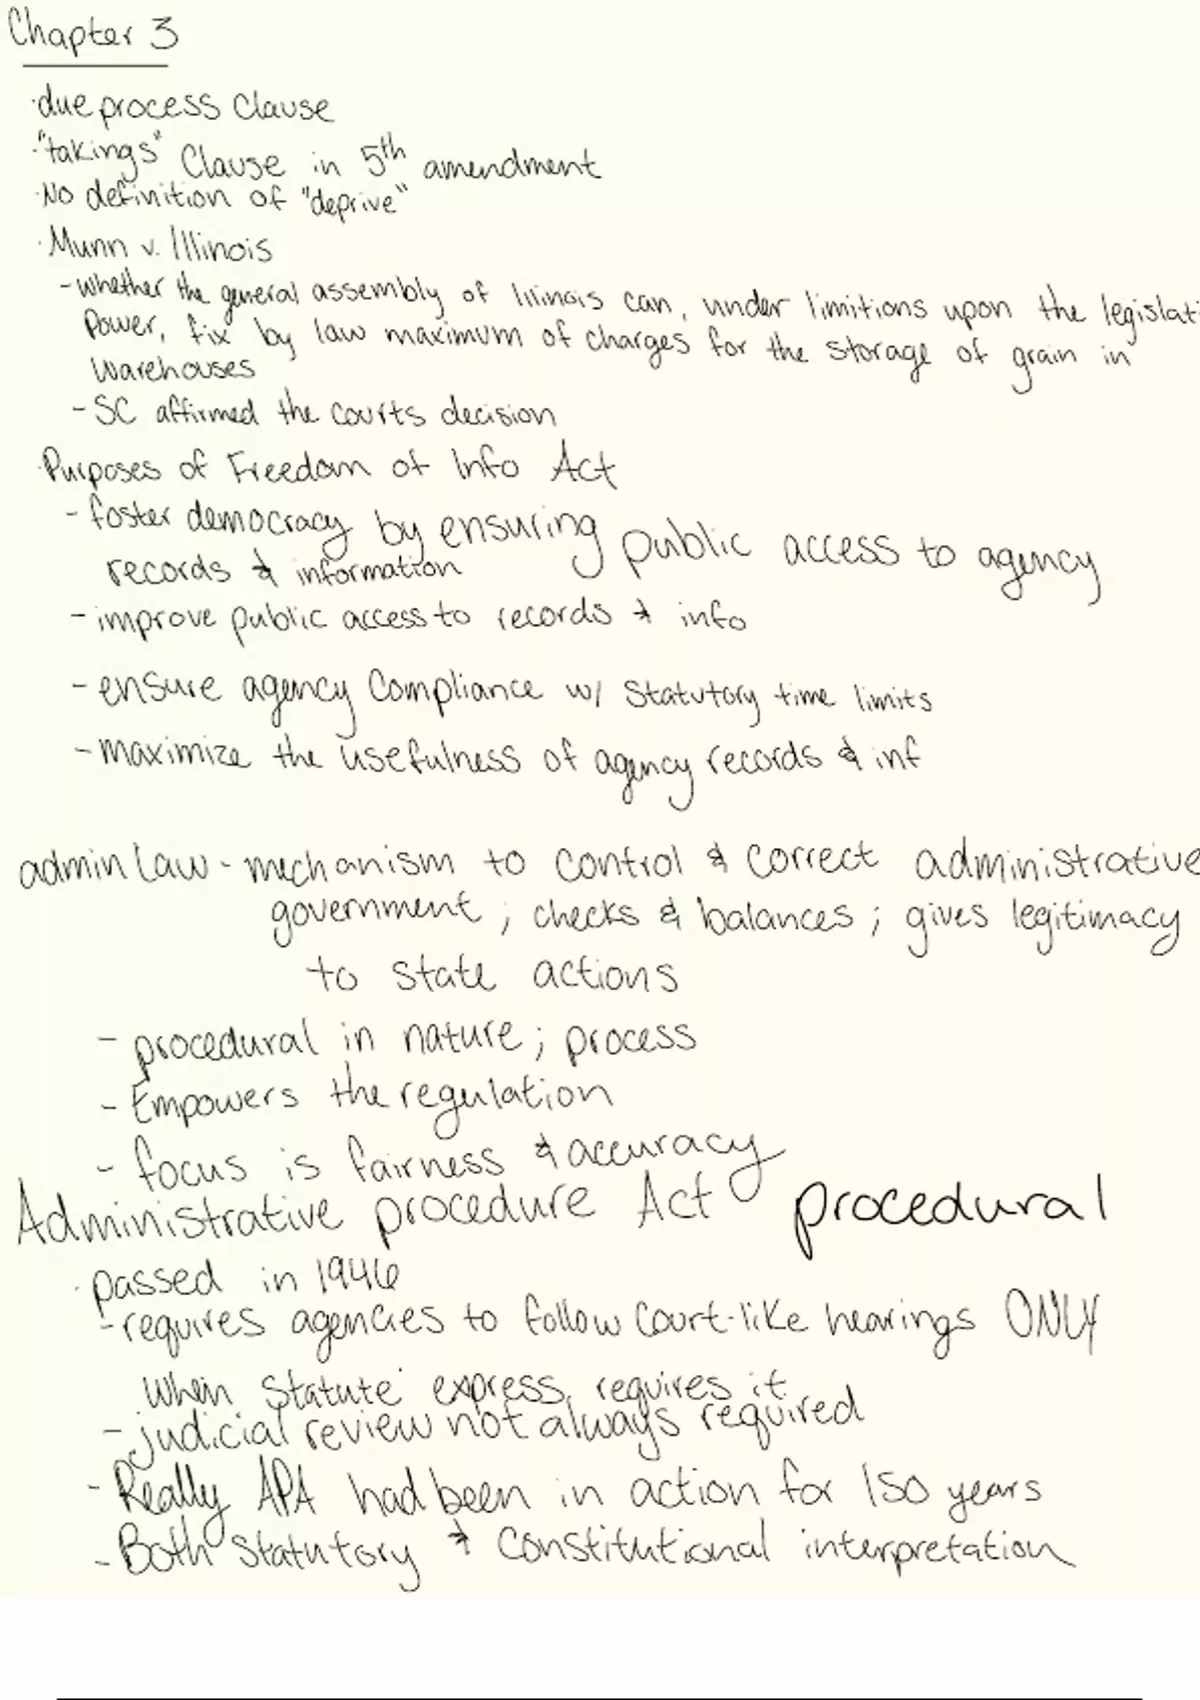 Chapter 3
·due process Clause
·"takings" Clause in 5th amendment
·No definition of "deprive"
·Munn v. Illinois
-whether the general assembly of Illinois can, under limitions upon the legislati
Power, fix by law maximum of charges for the storage of grain in
Warehouses
- SC affirmed the courts decision
·Purposes of Freedom of Info Act
- foster democracy by ensuring public access to agency
records & information
- improve public access to records & info
- ensure agency Compliance w/ Statutory time limits
- maximize the usefulness of agency records & inf
admin law - mechanism to control & correct administrative
government ; checks & balances ; gives legitimacy
to state actions
- procedural in nature ; process
- Empowers the regulation
- focus is fairness & accuracy
Administrative procedure Act procedural
· passed in 1946
- requires agencies to follow Court-like hearings ONLY
when statute express. requires it
- judicial review not always required
- Really APA had been in action for 150 years
- Both statutory & Constitutional interpretation